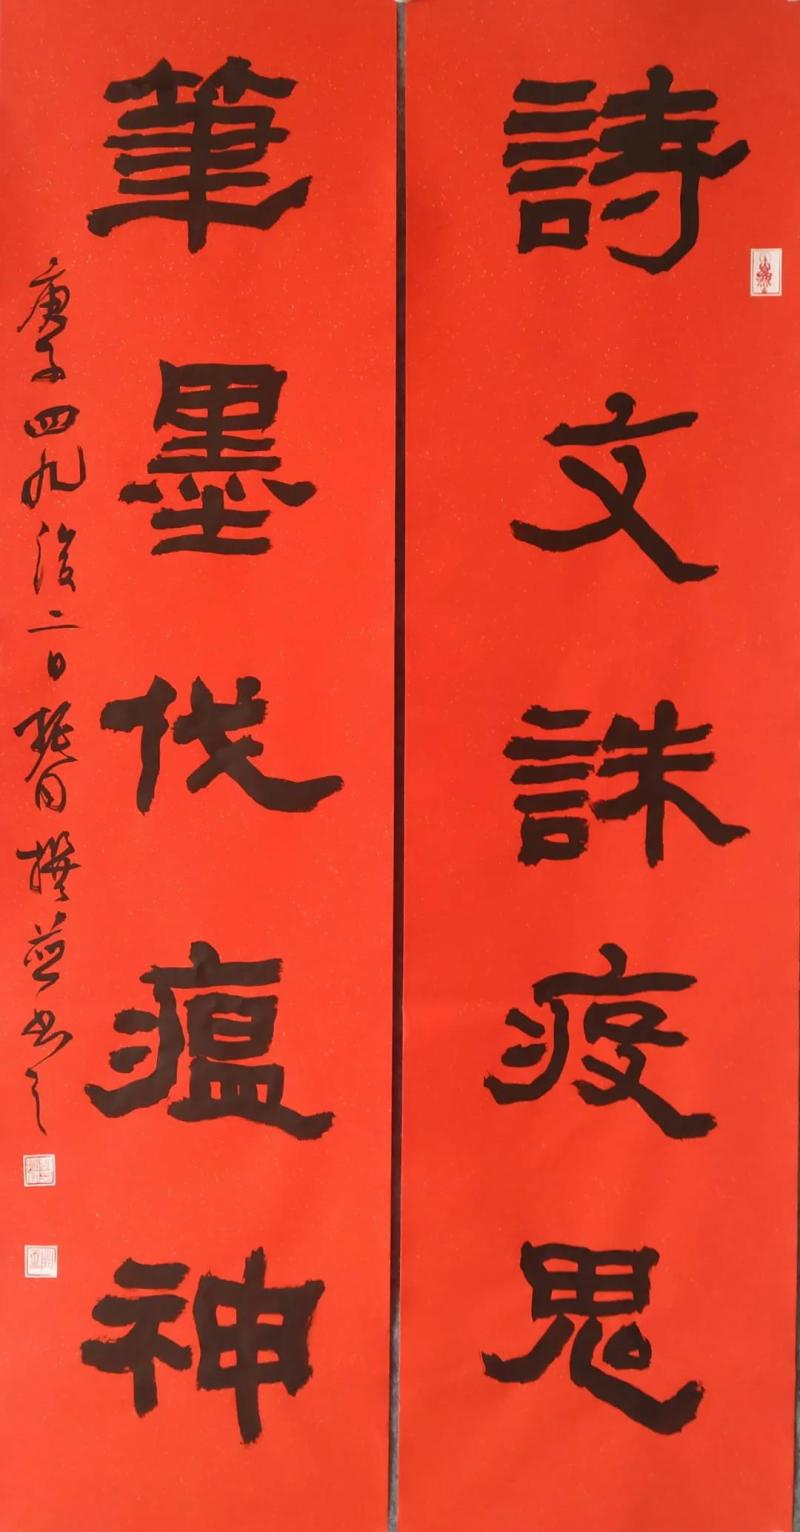 詩文誅疫鬼
筆墨伐瘟神
庚子四九後二日撰並书之